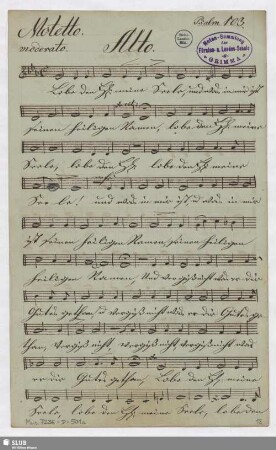 Motetto.
Psalm 103.
moderato.
Alto.
Noten-Sammlung
der
Fürsten- u. Landes-Schule
GRIMMA
Lobe den Hrn meine Seele, und was in mir ist
seinen heiligen Namen, lobe den Hrn meine
Seele, lobe den Hrn lobe den Hrn meine
See le! und was in mir ist, und was in mir
ist seinen heiligen Namen, seinen heiligen
heiligen Namen, Und vergiß nicht was er dir
Gutes gethan, und vergiß nicht was er dir Gutes ge-
than, vergiß nicht, vergiß nicht, vergiß nicht was
er dir Gutes gethan, Lobe den Hrn meine
Seele, lobe den Hrn meine Seele, lobe den
SLUB